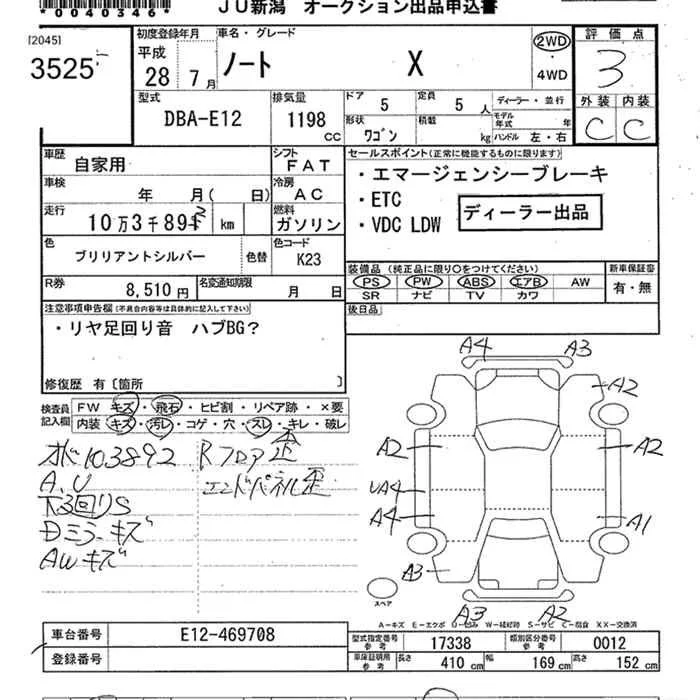 *0040346*
JU新潟 オークション出品申込書
[2045]
3525
初度登録年月
平成
28 7月
車名・グレード
ノート X
2WD
・
4WD
評価点
3
型式
DBA-E12
排気量
1198 CC
ドア 5
定員 5 人
形状 ワゴン
積載 kg
ディーラー・並行
モデル年式 年
ハンドル 左・右
外装 内装
C C
車歴 自家用
シフト FAT
車検 年 月( 日)
冷房 AC
走行 10万3千89 km
燃料 ガソリン
色 ブリリアントシルバー 色替
色コード K23
R券 8,510円
名変通知期限 月 日
セールスポイント(正常に機能するものに限ります)
・エマージェンシーブレーキ
・ETC
・VDC LDW
ディーラー出品
装備品 (純正品に限り○をつけてください)
PS PW ABS エアB AW
SR ナビ TV カワ
新車保証書
有・無
後日品
注意事項申告欄(不具合内容等は具体的に記入して下さい)
・リヤ足回り音 ハブBG?
修復歴 有〔箇所 〕
検査員記入欄
FW キズ・飛石・ヒビ割・リペア跡・×要
内装 キズ・汚レ・コゲ・穴・スレ・キレ・破レ
103892 Rフロア歪
A.U エンドパネル歪
下回りS
Dミラーキズ
AWキズ
A4 A3
A2
A2 A2
UA4
A4 A1
A3
スペア
A3 A2
A-キズ E-エクボ U-凹み W-補修跡 S-サビ C-腐食 XX-交換済
車台番号 E12-469708
登録番号
型式指定番号 参考 17338
類別区分番号 参考 0012
車庫証明用 参考
長さ 410 cm
幅 169 cm
高さ 152 cm